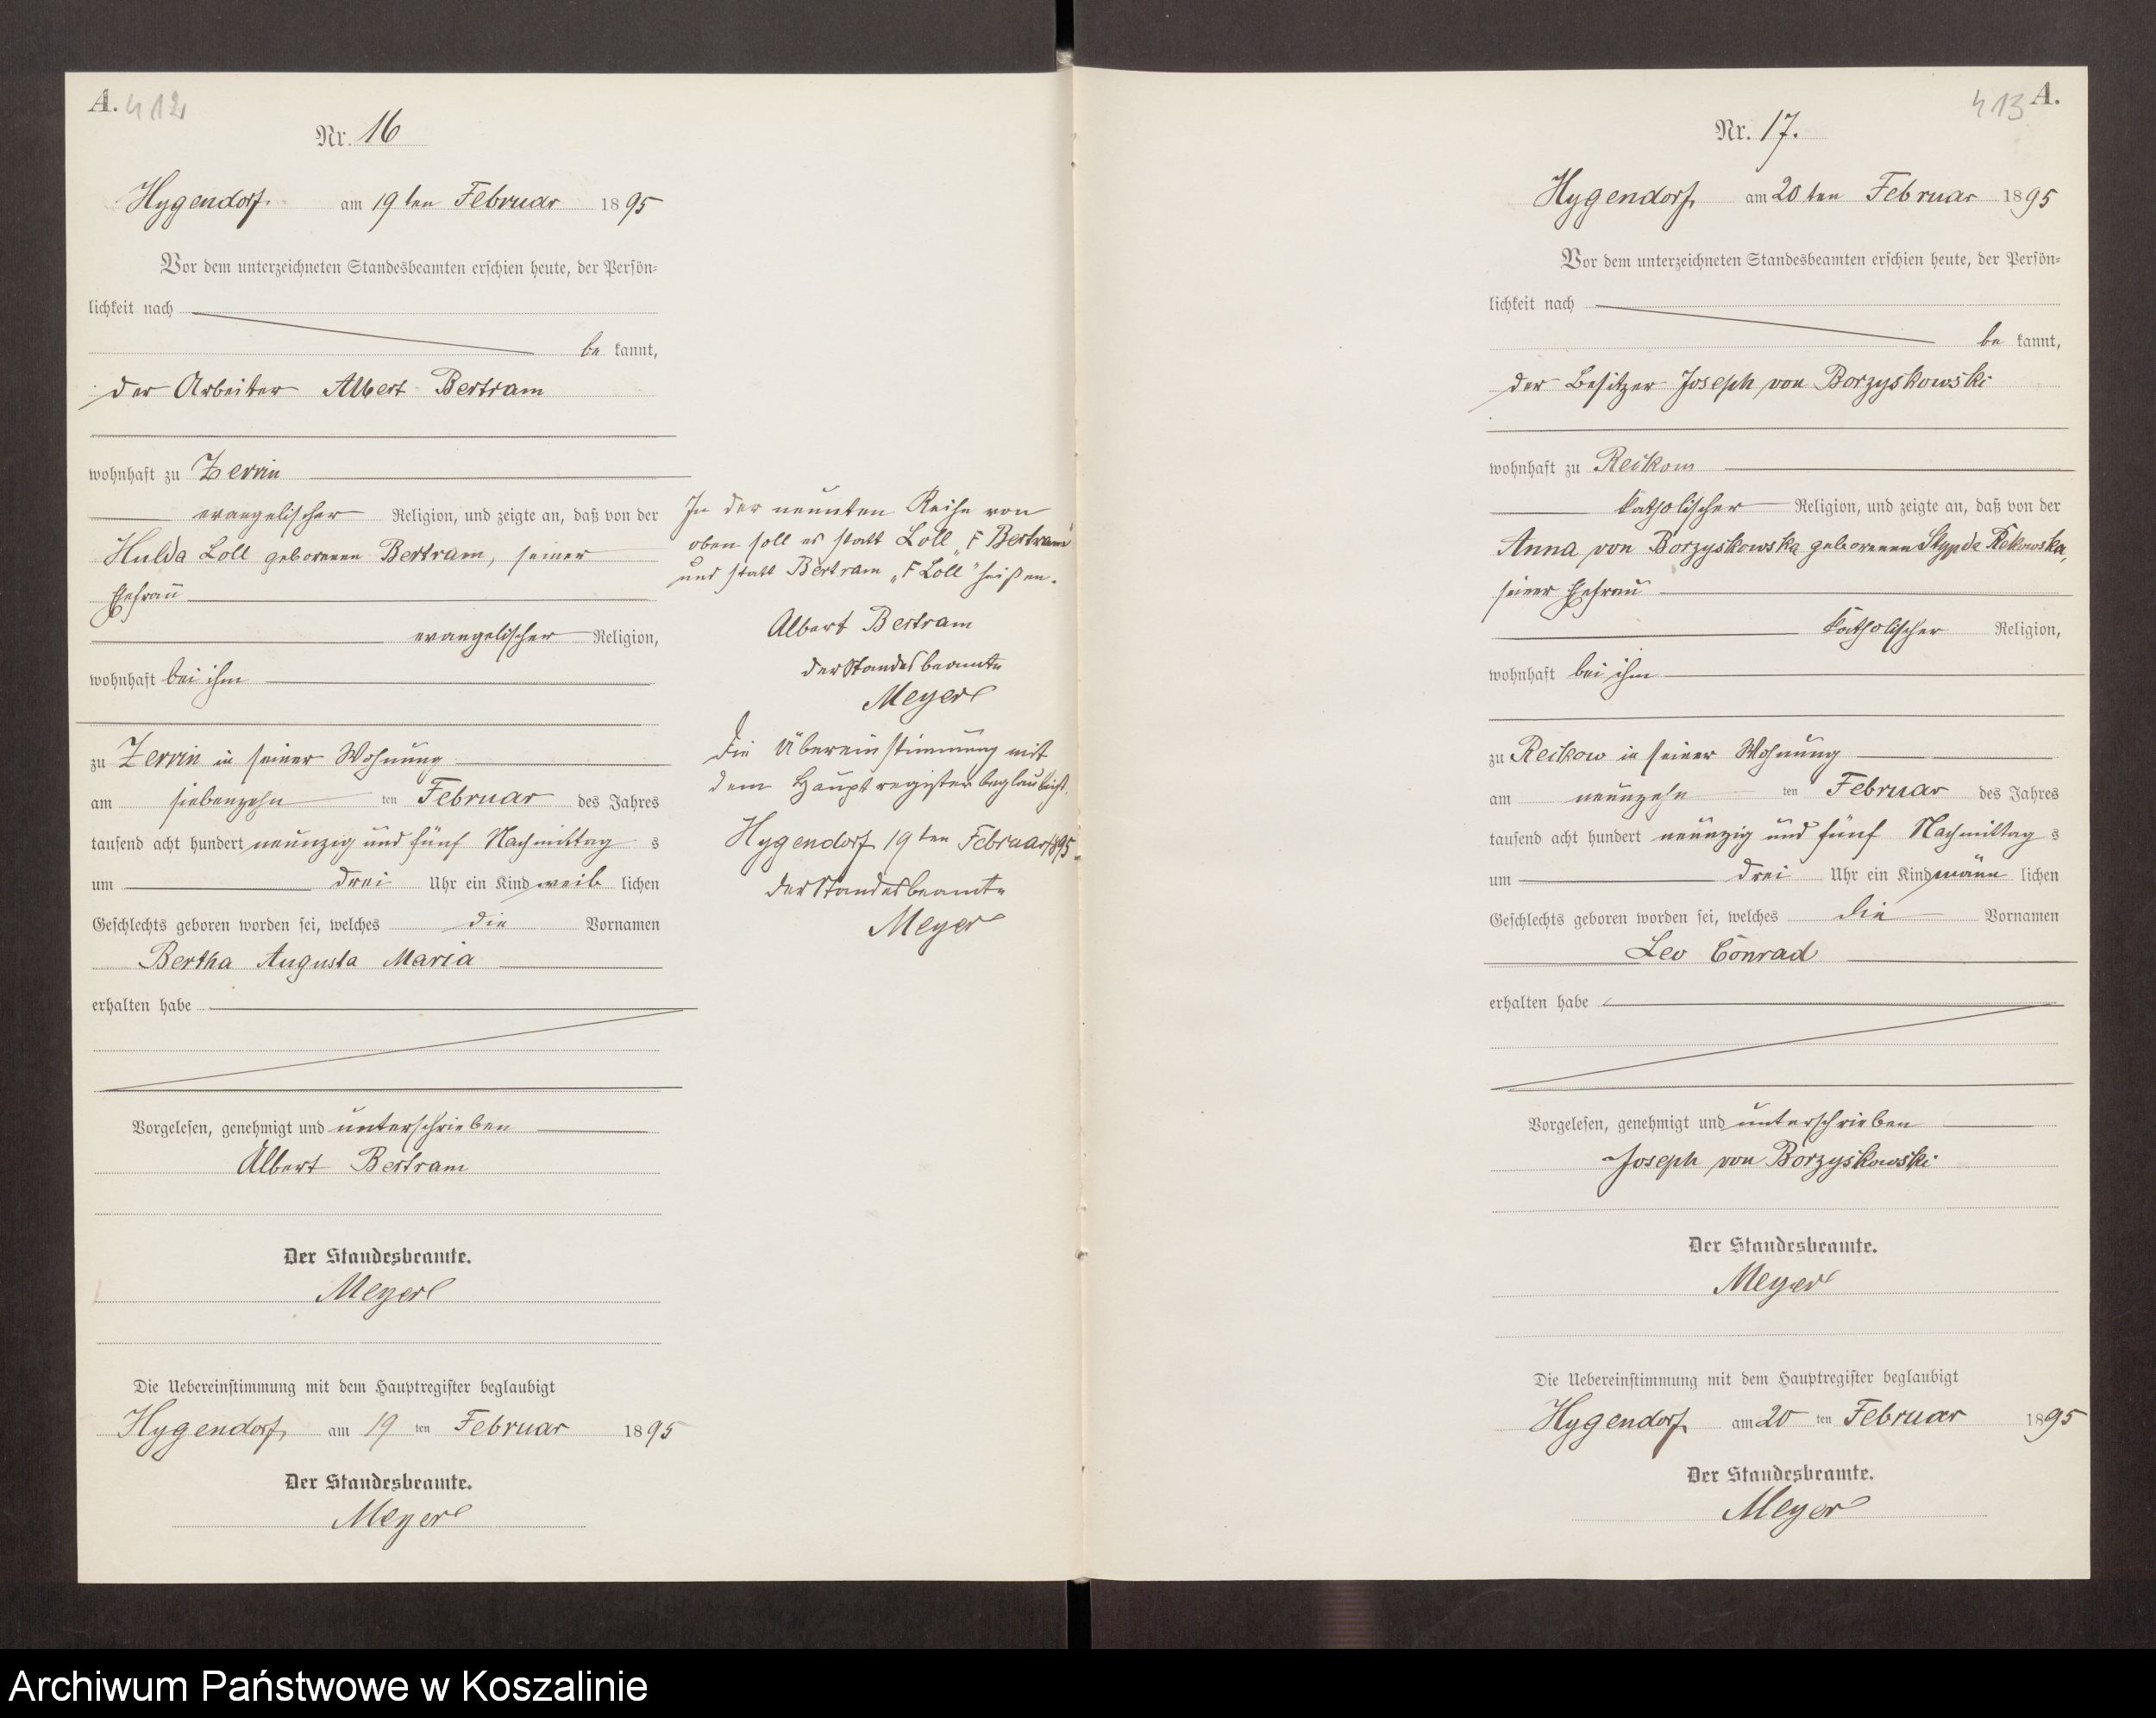 A. 412
Nr. 16
Hygendorf am 19ten Februar 1895
Vor dem unterzeichneten Standesbeamten erschien heute, der Persön-
lichkeit nach
be kannt,
der Arbeiter Albert Bertram
wohnhaft zu Zerrin
evangelischer Religion, und zeigte an, daß von der
Hulda Loll geborenen Bertram, seiner
Ehefrau
evangelischer Religion,
wohnhaft bei ihm
zu Zerrin in seiner Wohnung
am siebenzehn ten Februar des Jahres
tausend acht hundert neunzig und fünf Nachmittag s
um drei Uhr ein Kind weib lichen
Geschlechts geboren worden sei, welches die Vornamen
Bertha Augusta Maria
erhalten habe
Vorgelesen, genehmigt und unterschrieben
Albert Bertram
Der Standesbeamte.
Meyer
Die Uebereinstimmung mit dem Hauptregister beglaubigt
Hygendorf am 19 ten Februar 1895
Der Standesbeamte.
Meyer
In der neunten Reihe von
oben soll es statt Loll „F Bertram“
und statt Bertram „F Loll“ heißen.
Albert Bertram
der Standesbeamte
Meyer
Die Übereinstimmung mit
dem Hauptregister beglaubigt.
Hygendorf 19ten Februar 1895
der Standesbeamte
Meyer
413 A.
Nr. 17.
Hygendorf am 20ten Februar 1895
Vor dem unterzeichneten Standesbeamten erschien heute, der Persön-
lichkeit nach
be kannt,
der Besitzer Joseph von Borzyskowski
wohnhaft zu Reckow
katholischer Religion, und zeigte an, daß von der
Anna von Borzyskowska geborenen Stypda Rekowska,
seiner Ehefrau
katholischer Religion,
wohnhaft bei ihm
zu Reckow in seiner Wohnung
am neunzehn ten Februar des Jahres
tausend acht hundert neunzig und fünf Nachmittag s
um drei Uhr ein Kind männ lichen
Geschlechts geboren worden sei, welches die Vornamen
Leo Conrad
erhalten habe
Vorgelesen, genehmigt und unterschrieben
Joseph von Borzyskowski
Der Standesbeamte.
Meyer
Die Uebereinstimmung mit dem Hauptregister beglaubigt
Hygendorf am 20 ten Februar 1895
Der Standesbeamte.
Meyer
Archiwum Państwowe w Koszalinie